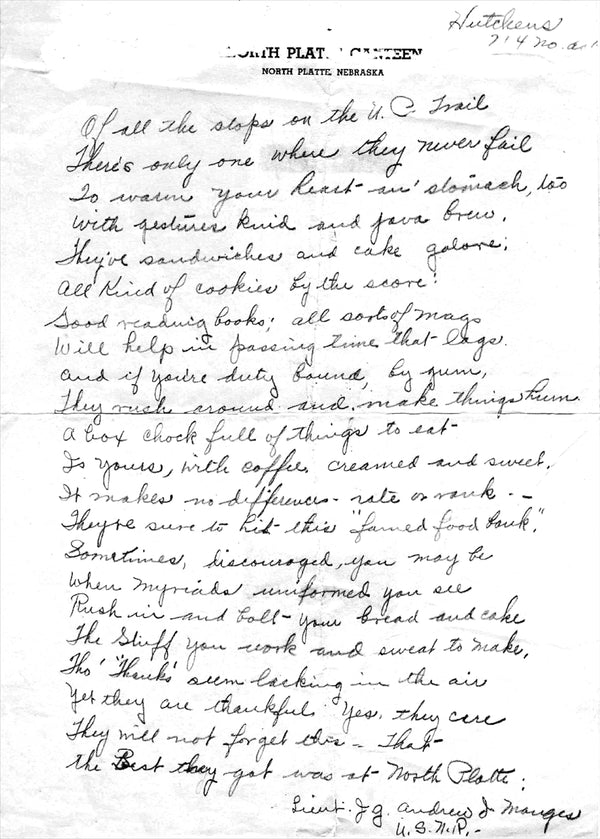 Hutchens
714 No.
NORTH PLATTE CANTEEN
NORTH PLATTE, NEBRASKA
Of all the stops on the U. P. Trail
There's only one where they never fail
To warm your heart an' stomach, too
With gestures kind and java brew.
They've sandwiches and cake galore;
All Kind of cookies by the score!
Good reading books; all sorts of mags
Will help in passing time that lags.
And if you're duty bound, by gum,
They rush around and make things hum.
A box chock full of things to eat
Is yours, with coffee, creamed and sweet.
It makes no difference - rate or rank - -
They're sure to hit this "famed food bank".
Sometimes, discouraged, you may be
When myriads uniformed you see
Rush in and bolt your bread and cake
The Stuff you work and sweat to make.
Tho' "Thanks" seem lacking in the air
Yet they are thankful. Yes, they care
They will not forget this - That
the Best they got was at North Platte.
Lieut. J.g. Andrew J
U.S.N.R. -